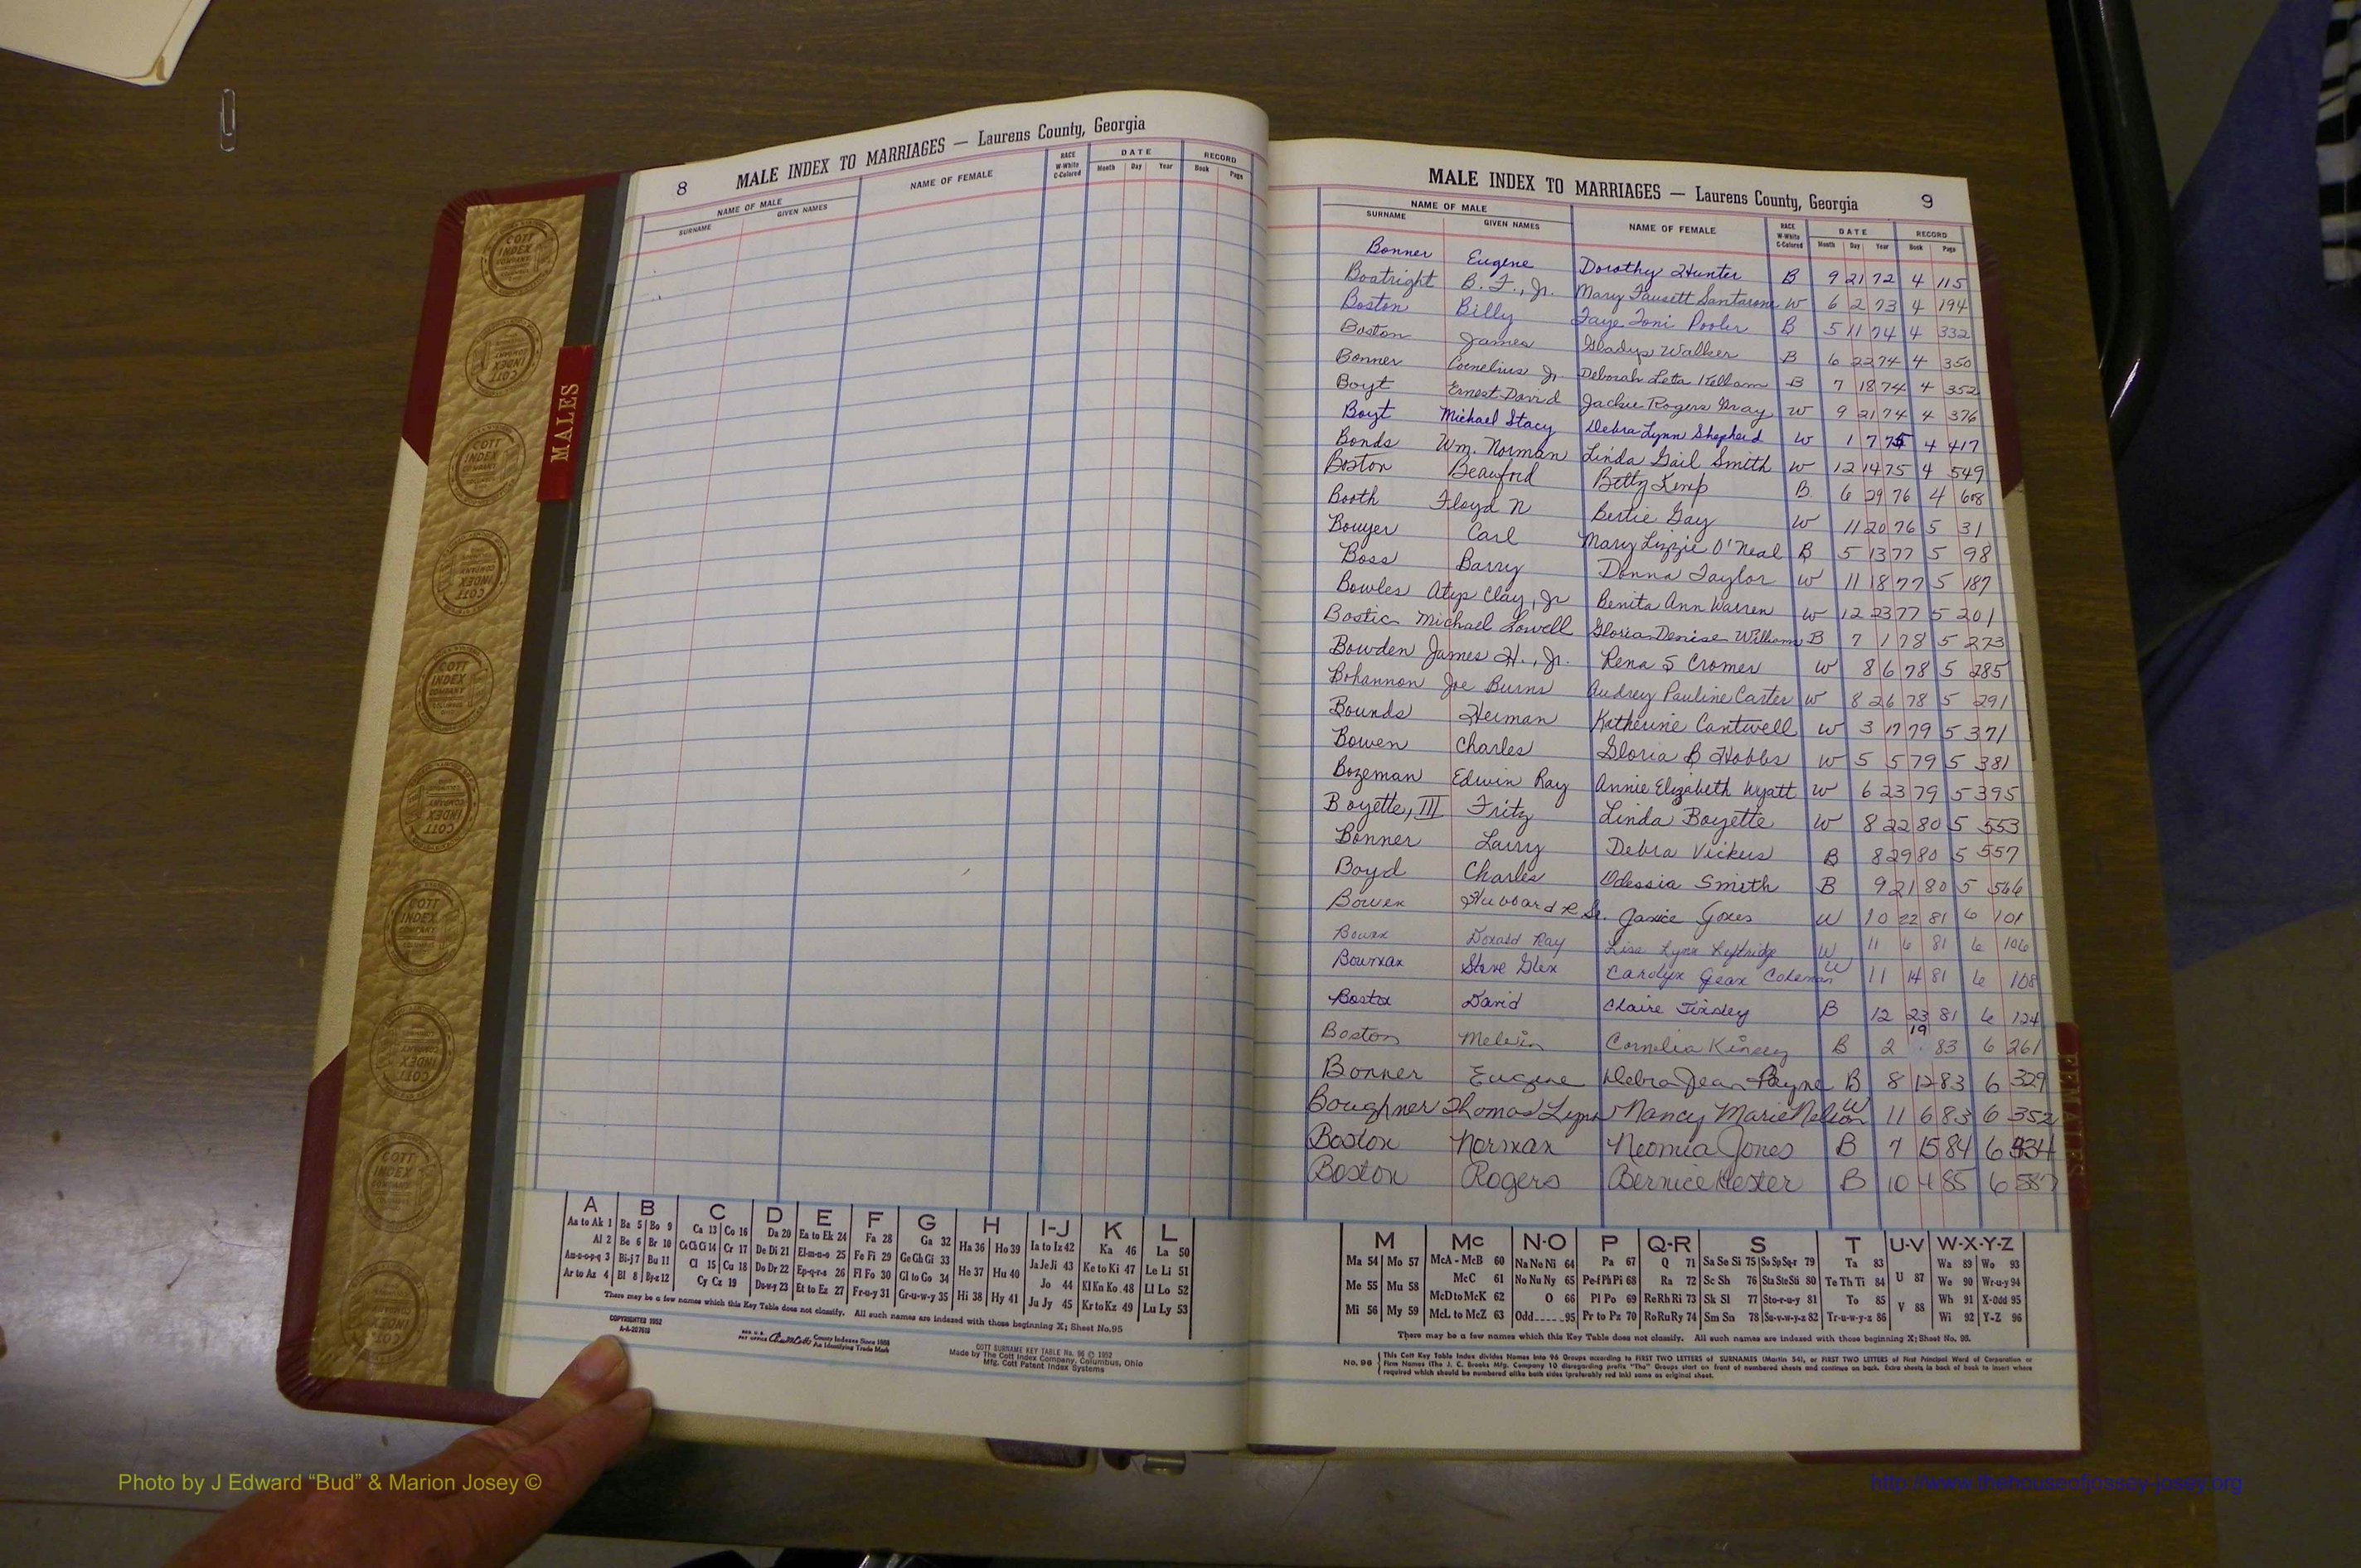 8 MALE INDEX TO MARRIAGES — Laurens County, Georgia
NAME OF MALE
SURNAME GIVEN NAMES
NAME OF FEMALE
RACE
W-White
C-Colored
DATE
Month Day Year
RECORD
Book Page
MALES
MALE INDEX TO MARRIAGES — Laurens County, Georgia 9
NAME OF MALE
SURNAME GIVEN NAMES
NAME OF FEMALE
RACE
W-White
C-Colored
DATE
Month Day Year
RECORD
Book Page
Bonner Eugene Dorothy Hunter B 9 21 72 4 115
Boatright B. F., Jr. Mary Fausett Santarone W 6 2 73 4 194
Boston Billy Faye Toni Pooler B 5 11 74 4 332
Boston James Gladys Walker B 6 22 74 4 350
Bonner Cornelius Jr Deborah Leta Kellam B 7 18 74 4 352
Boyt Ernest David Jackie Rogers Gray W 9 21 74 4 376
Boyt Michael Stacy Debra Lynn Shepherd W 1 7 75 4 417
Bonds Wm. Norman Linda Gail Smith W 12 14 75 4 549
Boston Beauford Betty Kemp B 6 29 76 4 608
Booth Floyd N Bertie Gay W 11 20 76 5 31
Bouyer Carl Mary Lizzie O'Neal B 5 13 77 5 98
Boss Barry Donna Taylor W 11 18 77 5 187
Bowles Clay, Jr Benita Ann Warren W 12 23 77 5 201
Bostic Michael Lowell Gloria Denise Williams B 7 1 78 5 273
Bowden James H., Jr. Rena S Cromer W 8 6 78 5 285
Bohannon Joe Burns Audrey Pauline Carter W 8 26 78 5 291
Bounds Herman Katherine Cantwell W 3 17 79 5 371
Bowen Charles Gloria B Hobbs W 5 5 79 5 381
Bozeman Edwin Ray Annie Elizabeth Wyatt W 6 23 79 5 395
Boyette, III Fritz Linda Boyette W 8 22 80 5 553
Bonner Larry Debra Vickers B 8 29 80 5 557
Boyd Charles Odessia Smith B 9 21 80 5 566
Bowen Hubbard R Sr. Janice Jones W 10 22 81 6 101
Bowen Donald Ray Lisa Lynn W 11 6 81 6 106
Bowman Steve Glen Carolyn Jean Coleman W 11 14 81 6 108
Boston David Claire Tinsley B 12 23 81 6 124
Boston Melvin Cornelia Kinsey B 2 19 83 6 261
Bonner Eugene Debra Jean Payne B 8 12 83 6 329
Boughner Thomas Lynn Nancy Marie Nelson W 11 6 83 6 352
Boston Norman Neomia Jones B 7 15 84 6 434
Boston Rogers Bernice Hester B 10 4 85 6 587
A B C D E F G H I-J K L
Aa to Ak 1 Ba 5 Bo 9 Ca 13 Co 16 Da 20 Ea to Ek 24 Fa 28 Ga 32 Ha 36 Ho 39 Ia to Iz 42 Ka 46 La 50
Al 2 Be 6 Br 10 Ce Ch Ci 14 Cr 17 De Di 21 El-m-n-o 25 Fe Fi 29 Ge Gh Gi 33 He 37 Hu 40 Ja Je Ji 43 Ke to Ki 47 Le Li 51
Am-n-o-p-q 3 Bi-j 7 Bu 11 Cl 15 Cu 18 Do Dr 22 Ep-q-r-s 26 Fl Fo 30 Gl to Go 34 Hi 38 Hy 41 Jo 44 Kl Kn Ko 48 Ll Lo 52
Ar to Az 4 Bl 8 By-z 12 Cy Cz 19 Du-w-y 23 Et to Ez 27 Fr-u-y 31 Gr-u-w-y 35 Ju Jy 45 Kr to Kz 49 Lu Ly 53
There may be a few names which this Key Table does not classify. All such names are indexed with those beginning X; Sheet No.95
COPYRIGHTED 1952
A-A-207619
County Indexes Since 1888
An Identifying Trade Mark
COTT SURNAME KEY TABLE No. 96 © 1952
Made by The Cott Index Company, Columbus, Ohio
Mfg. Cott Patent Index Systems
M Mc N-O P Q-R S T U-V W-X-Y-Z
Ma 54 Mo 57 McA - McB 60 Na Ne Ni 64 Pa 67 Q 71 Sa Se Si 75 So Sp Sq-r 79 Ta 83 U 87 Wa 89 Wo 93
Me 55 Mu 58 McC 61 No Nu Ny 65 Pe-f Ph Pi 68 Ra 72 Sc Sh 76 Sta Ste Sti 80 Te Th Ti 84 V 88 We 90 Wr-u-y 94
Mi 56 My 59 McD to McK 62 O 66 Pl Po 69 Re Rh Ri 73 Sk Sl 77 Sto-r-u-y 81 To 85 Wh 91 X-Odd 95
McL to McZ 63 Odd.....95 Pr to Pz 70 Ro Ru Ry 74 Sm Sn 78 Su-v-w-y-z 82 Tr-u-w-y-z 86 Wi 92 Y-Z 96
There may be a few names which this Key Table does not classify. All such names are indexed with those beginning X; Sheet No. 98.
No. 96 This Cott Key Table Index divides Names into 96 Groups according to FIRST TWO LETTERS of SURNAMES (Martin 54), or FIRST TWO LETTERS of First Principal Word of Corporation or
Firm Names (The J. C. Brooks Mfg. Company 10 disregarding prefix "The" Groups start on front of numbered sheets and continue on back. Extra sheets in back of book to insert where
required which should be numbered alike both sides (preferably red ink) same as original sheet.
Photo by J Edward “Bud” & Marion Josey ©
http://www.thehouseofjossey-josey.org